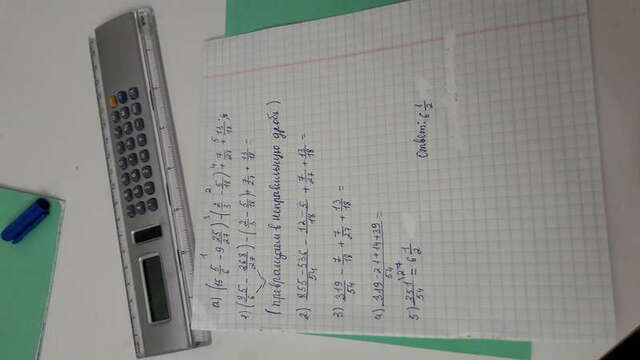 а) (15 5/6 - 9 25/27) - (2/3 - 5/18) + 7/27 + 13/18;
1) (95/6 - 268/27) - (2/3 - 5/18) + 7/27 + 13/18 =
(превращаем в неправильную дробь)
2) 855-536/54 - 12-5/18 + 7/27 + 13/18 =
3) 319/54 - 7/18 + 7/27 + 13/18 =
4) 319-21+14+39/54 =
5) 351/54 = 6 1/2
Ответ: 6 1/2